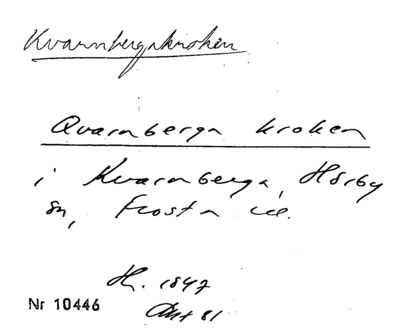 Kvarnbergakroken
Qvarnberga kroken
i Kvarnberga, Hörby
sn, Frosta
H. 1847
Nr 10446
81